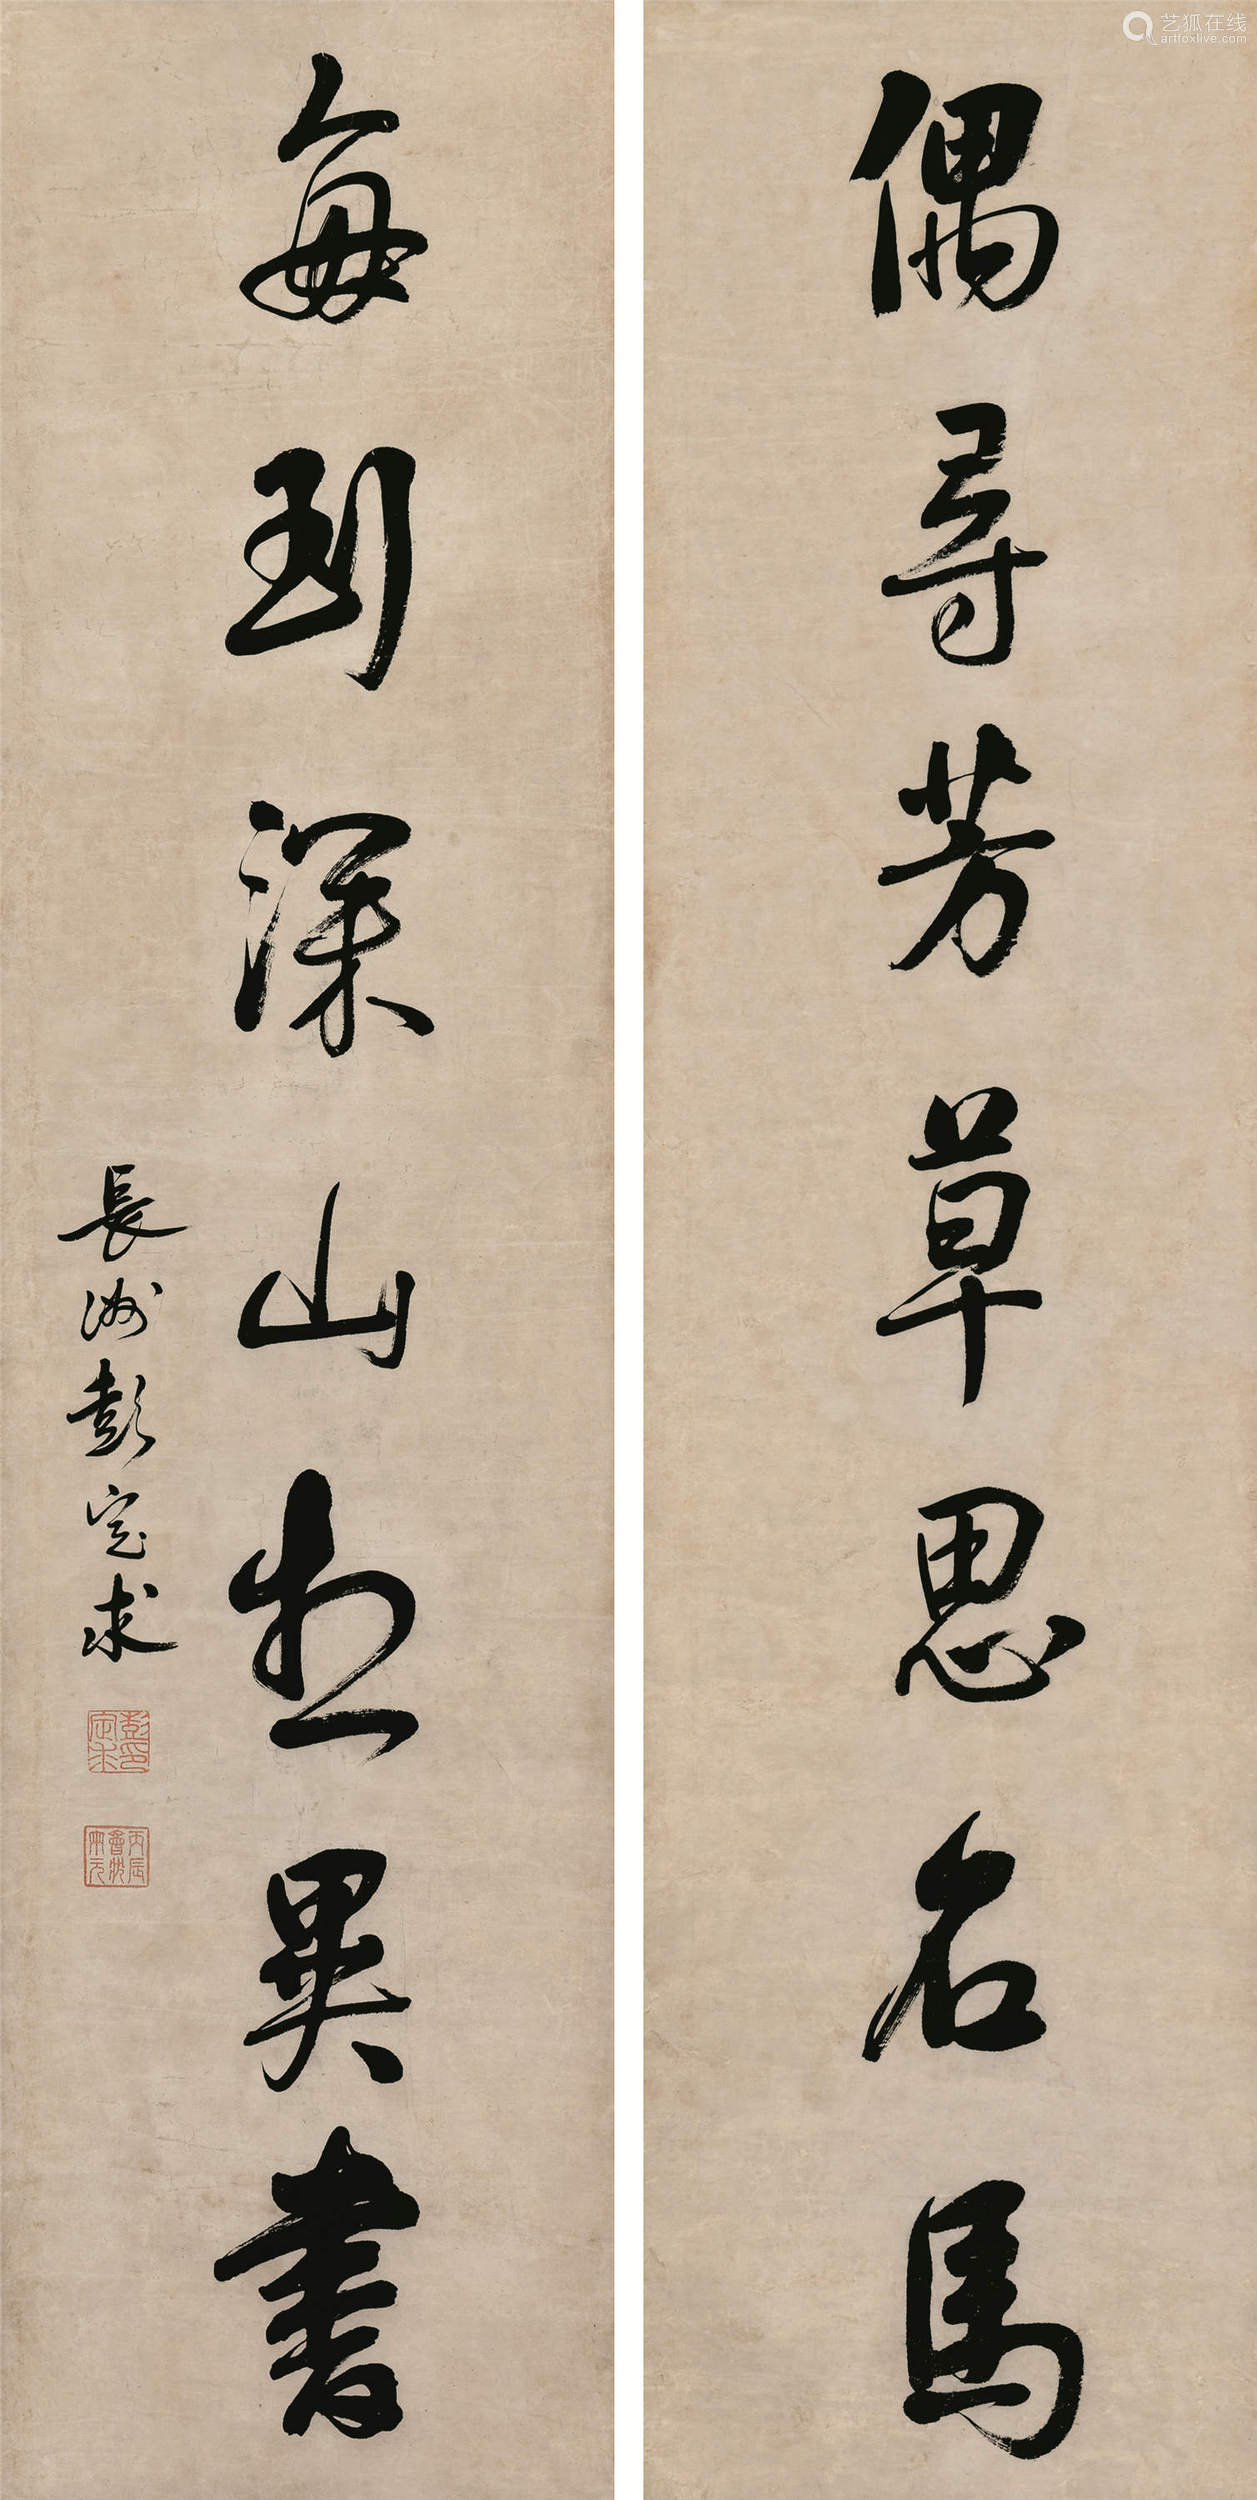 偶尋芳草思名馬
每到深山想異書
長洲彭定求
彭定求印
丙辰會狀兩元
艺狐在线
artfoxlive.com